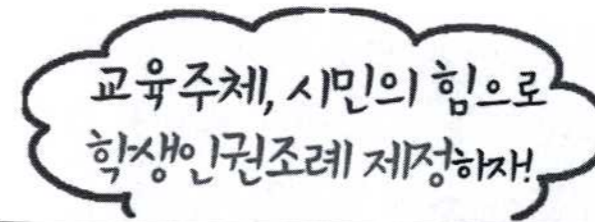 교육주체, 시민의 힘으로
학생인권조례 제정하자!